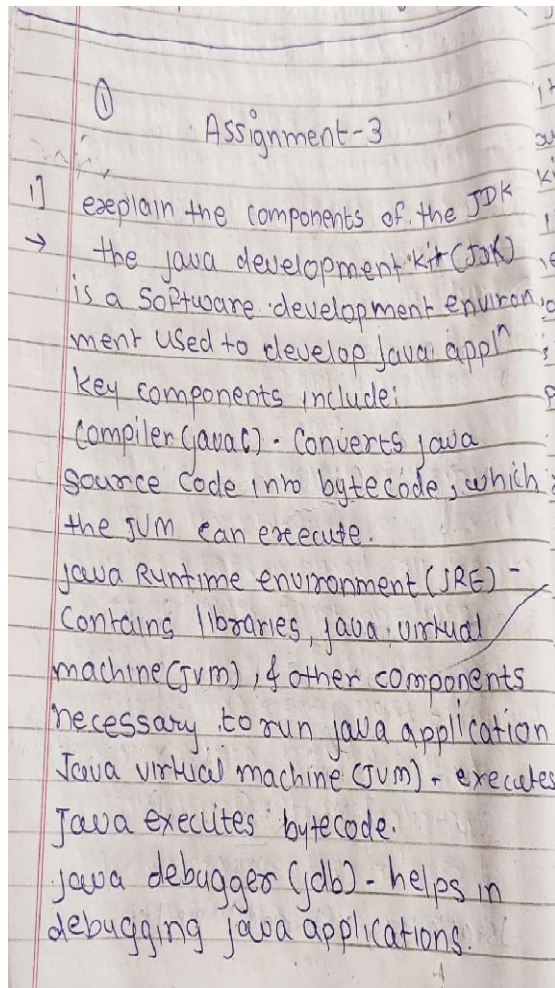 ①
Assignment-3
1] exeplain the components of the JDK
→ the java development kit (JDK)
is a software development environ
ment used to develop java applⁿ
key components include:
Compiler (javac) - Converts java
Source code into bytecode, which
the JVM can execute.
java Runtime environment (JRE) -
Contains libraries, java virtual
machine (JVM), & other components
necessary to run java application
Java virtual machine (JVM) - executes
Java executes bytecode.
java debugger (jdb) - helps in
debugging java applications.